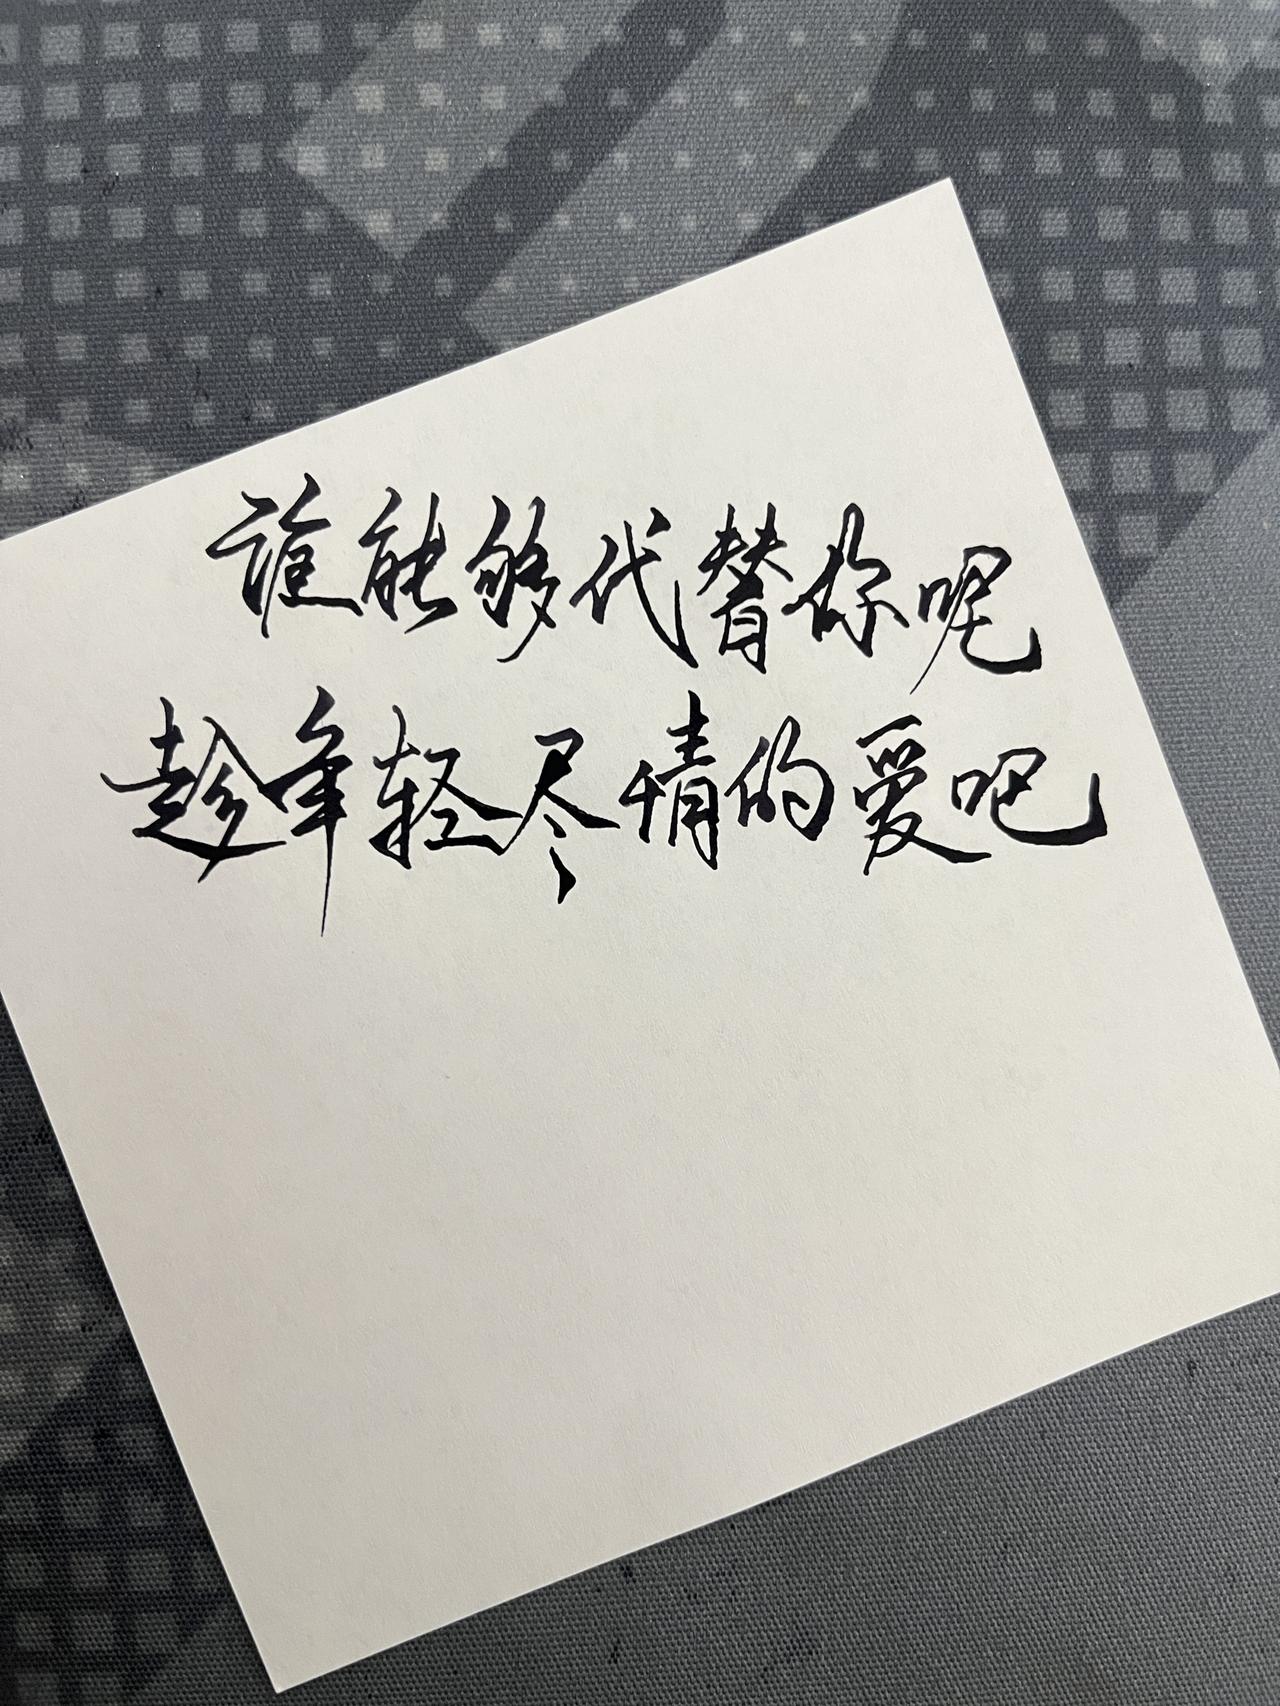 谁能够代替你呢
趁年轻尽情的爱吧